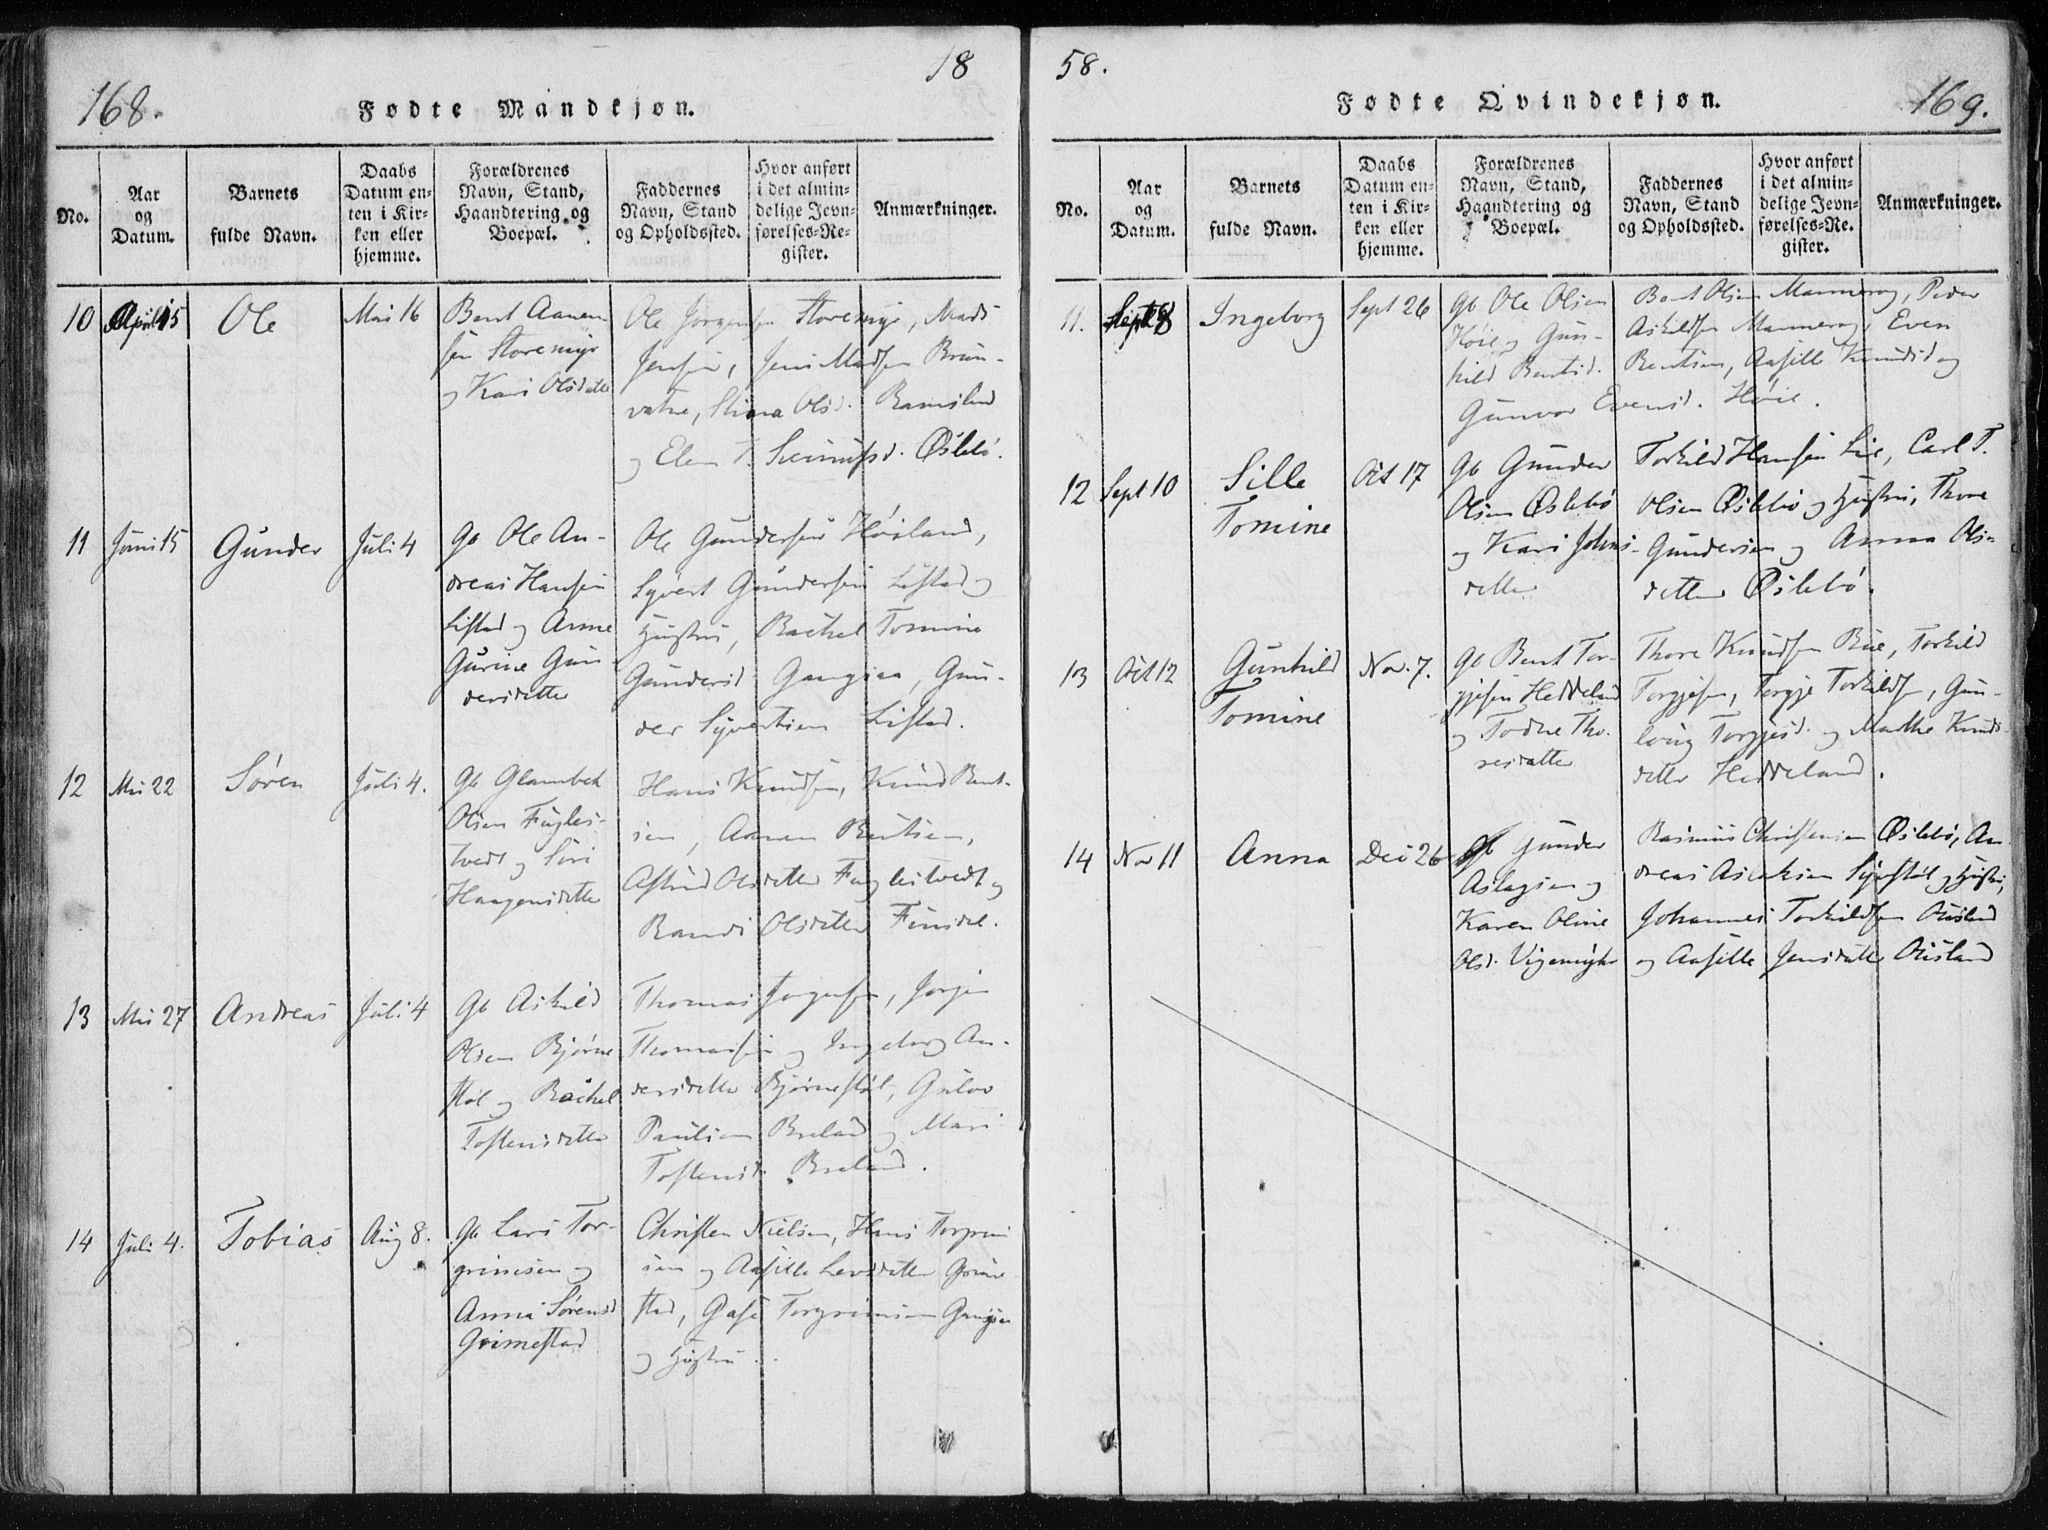 168.
18
Fødte Mandkjøn.
No.
Aar
og
Datum.
Barnets
fulde Navn.
Daabs
Datum en-
ten i Kir-
ken eller
hjemme.
Forældrenes
Navn, Stand,
Haandtering og
Boepæl.
Faddernes
Navn, Stand
og Opholdssted.
Hvor anført
i det almin-
delige Jevn-
førelses-Re-
gister.
Anmærkninger.
10 April 15 Ole Mai 16
Bent Aanen-
sen Storemyr
og Kari Olsdatter
Ole Jørgensen Storemyr, Mads
Jensen, Jens Madsen Brun-
vatne, Stina Olsd. Ramsland
og Elen T. Øslebø.
11 Juni 15 Gunder Juli 4
Gb Ole An-
dreas Hansen
Liestad og Anne
Gurine Gun-
dersdatter
Ole Gundersen Høiland,
Syvert Gundersen Liestad og
Hustru, Rachel Tomine
Gundersd. Gangsaa, Gun-
der Syvertsen Liestad.
12 Mai 22 Søren Juli 4.
Gb Glambek
Olsen Fugles-
tvedt og Siri
Haagensdatter
Hans Knudsen, Knud Bent-
sen, Aanen Bentsen,
Astrid Olsdatter Fuglestvedt og
Randi Olsdatter Finsdal.
13 Mai 27 Andreas Juli 4
Gb Askild
Olsen Bjørne
støl og Rachel
Tostensdatter
Thomas Jørgensen, Jørgen
Thomassen og Ingeborg An-
dersdatter Bjørnestøl, Gulov
Paulsen Breland og Mari
Tostensd. Breland.
14 Juli 4. Tobias Aug 8.
Gb Lars Tor-
grimsen og
Anna Sørensd
Grimestad
Christen Nielsen, Hans Torgrim
sen og Aasille Larsdatter Grime-
stad, Torgrimsen Gangsaa
og Hustru.
58.
169.
Fødte Qvindekjøn.
No.
Aar
og
Datum.
Barnets
fulde Navn.
Daabs
Datum en-
ten i Kir-
ken eller
hjemme.
Forældrenes
Navn, Stand,
Haandtering og
Boepæl.
Faddernes
Navn, Stand
og Opholdssted.
Hvor anført
i det almin-
delige Jevn-
førelses-Re-
gister.
Anmærkninger.
11. Sept 8 Ingeborg Sept 26
Gb Ole Olsen
Høie og Gun-
hild Bentsd.
Bent Olsen Mannerog, Peder
Askildsen Mannerog, Even
Bentsen, Aasille Knudsd og
Gunvor Evensd. Høie.
12 Sept 10 Sille
Tomine
Oct 17
Gb Gunder
Olsen Øslebø
og Kari Johns-
datter
Torkild Hansen Lie, Carl T.
Olsen Øslebø og Hustru, Thore
Gundersen og Anna Ols-
datter Øslebø.
13 Oct 12 Gunhild
Tomine
Nov. 7.
Gb Bent Tor-
gjesen Heddeland
og Todne Tho-
resdatter
Thore Knudsen Bue, Torkild
Torgjesen, Tergje Torkildsen, Gun-
loug Torgjesd. og Marthe Knuds-
datter Heddeland.
14 Nov 11 Anna Dec 26
Gb Gunder
Aslagsen og
Karen Oline
Olsd. Vigemyhr
Rasmus Christensen Øslebø, An-
dreas Asl og Hustru,
Johannes Torkildsen Ousland
og Aasille Jensdatter Ousland